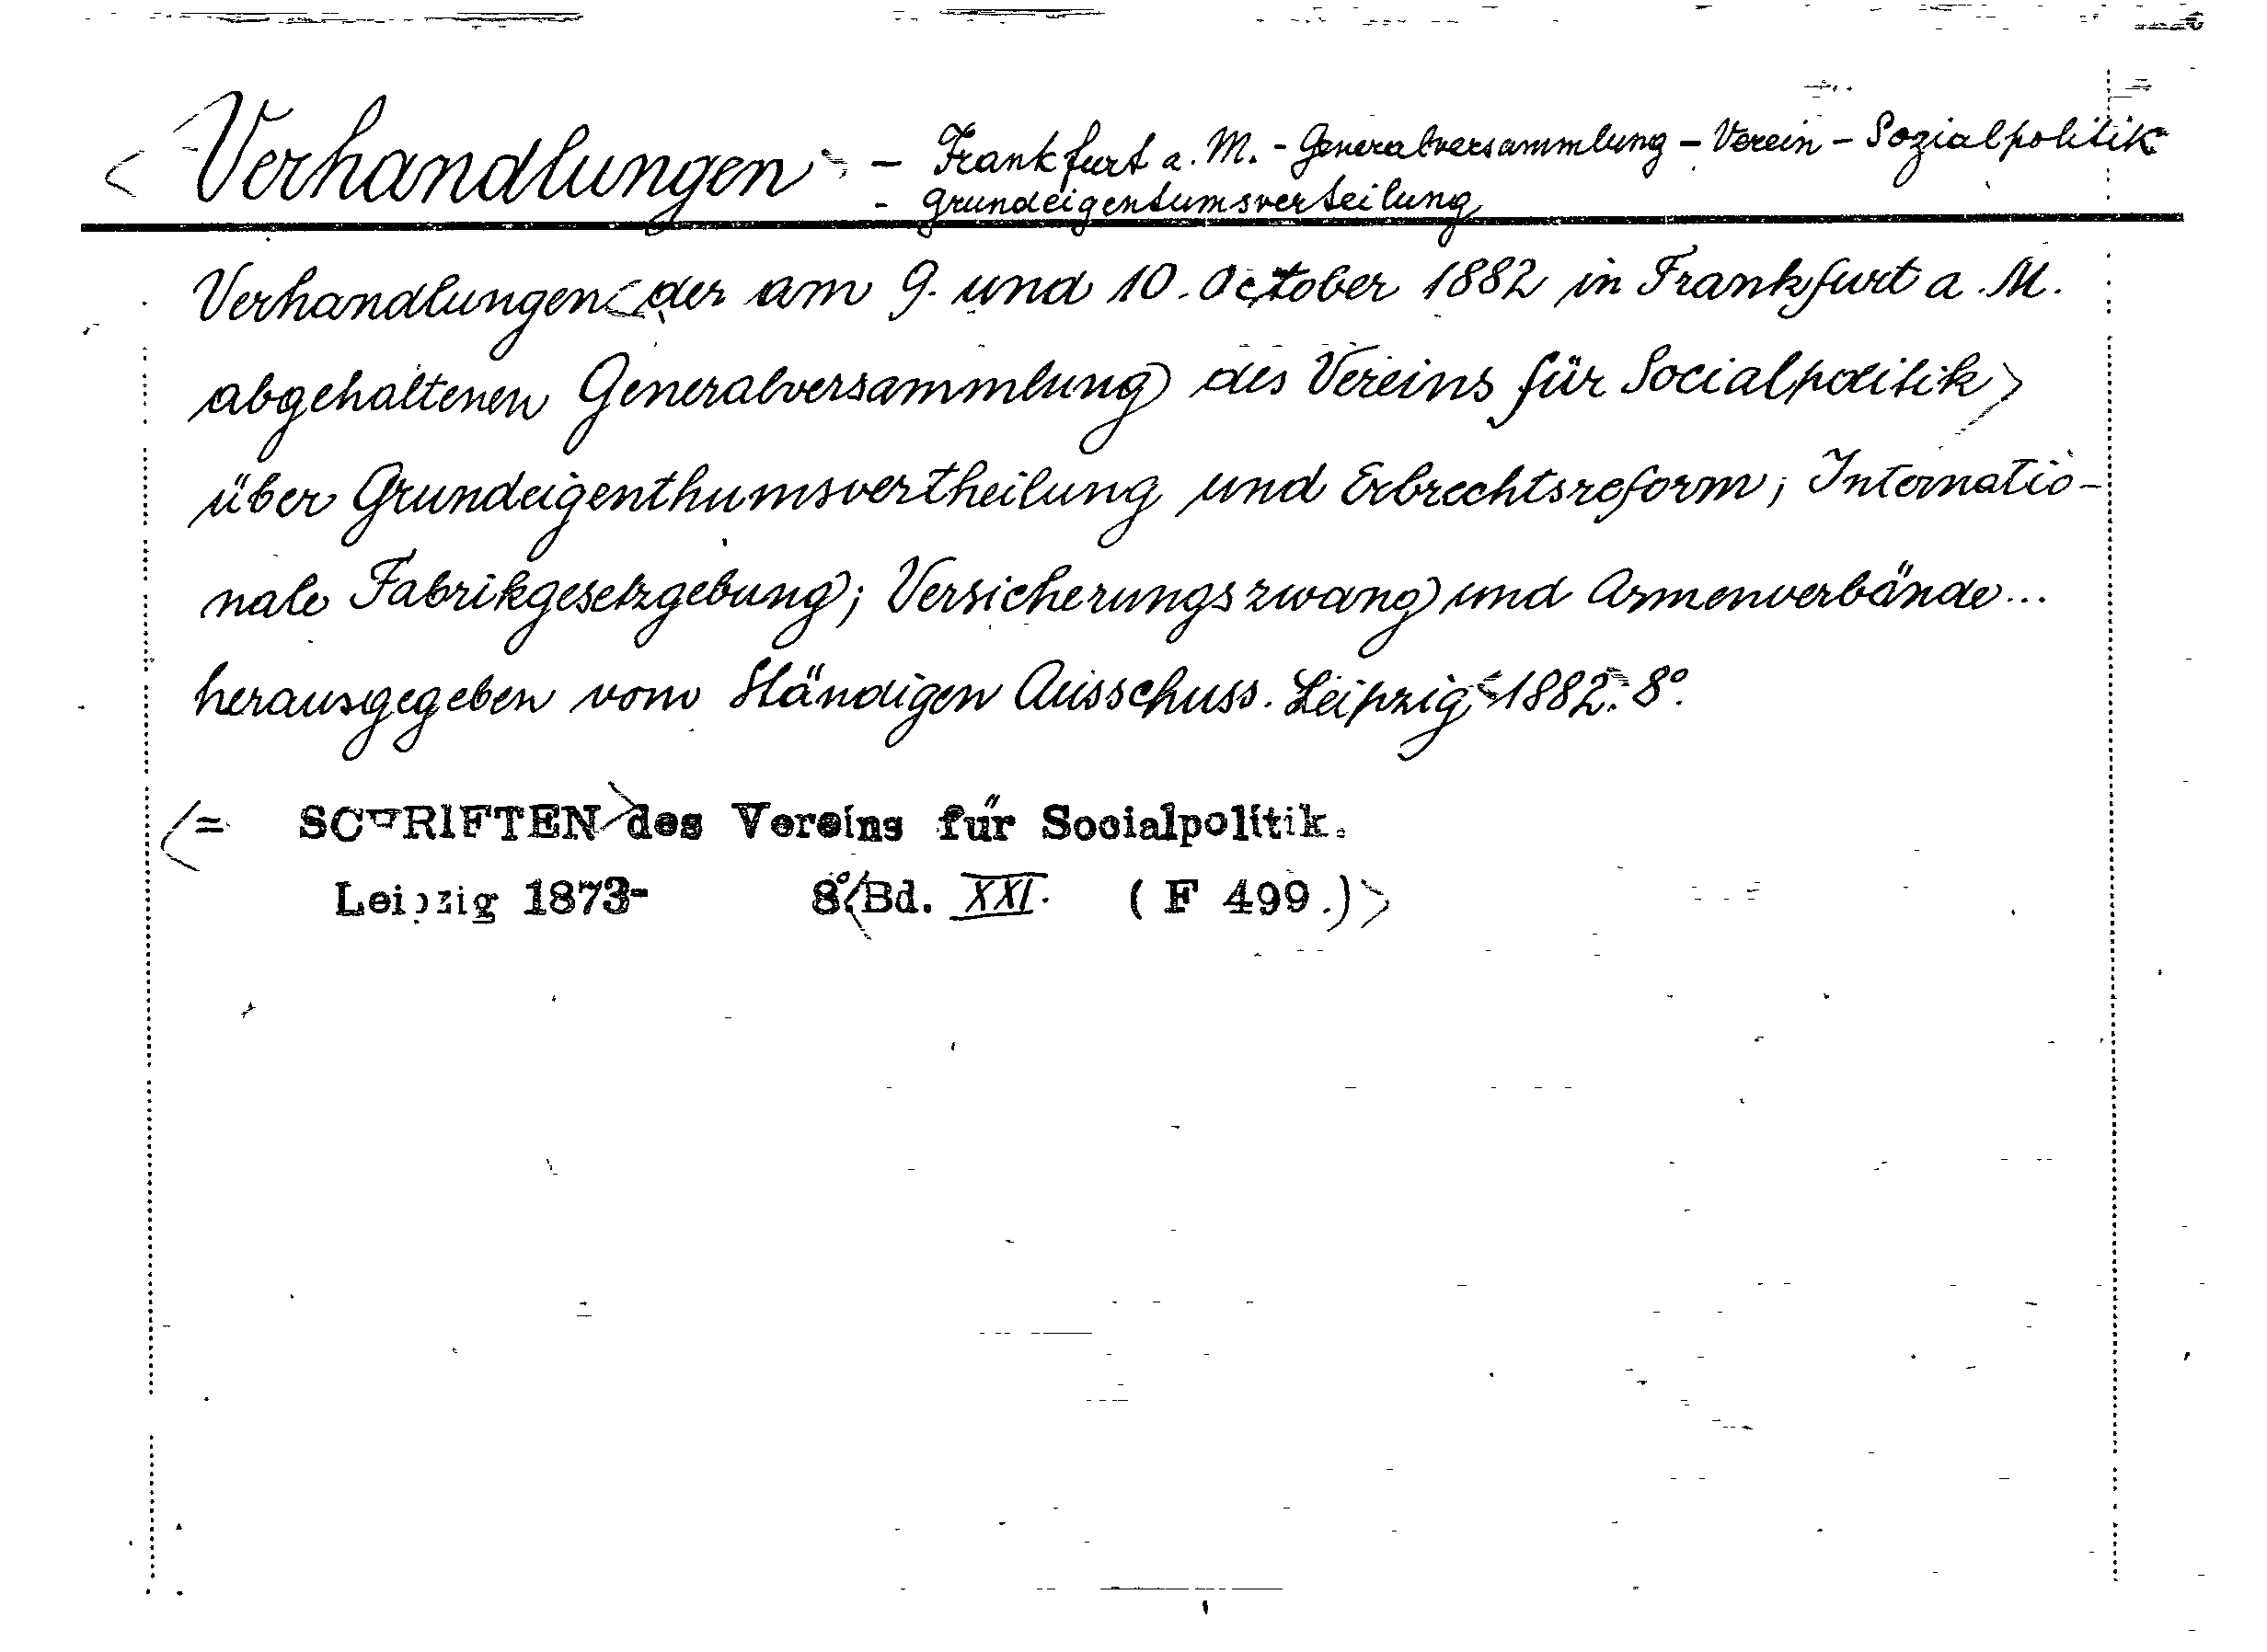 <Verhandlungen> - Frankfurt a. M. - Generalversammlung - Verein - Sozialpolitik
- Grundeigentumsverteilung
Verhandlungen <der am 9. und 10. October 1882 in Frankfurt a. M.
abgehaltenen Generalversammlung des Vereins für Socialpolitik>
über Grundeigenthumsvertheilung und Erbrechtsreform; Internatio-
nale Fabrikgesetzgebung; Versicherungszwang und Armenverbände...
herausgegeben vom Ständigen Ausschuss. Leipzig <1882>. 8°.
<= SCHRIFTEN> des Vereins für Socialpolitik.
Leipzig 1873- 8°. <Bd. XXI. (F 499.)>